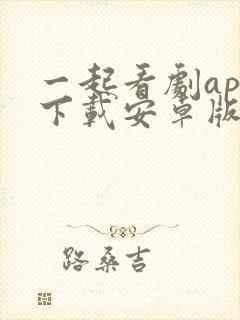 一起看剧ap
下载安卓版
路桑吉